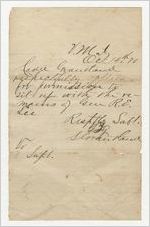 V.M.I.
Oct. 14th 70
Cadet
respectfully
for permission to
sit up with the re-
mains of Gen R.E.
Lee
Respty Subt.
To
Supt.